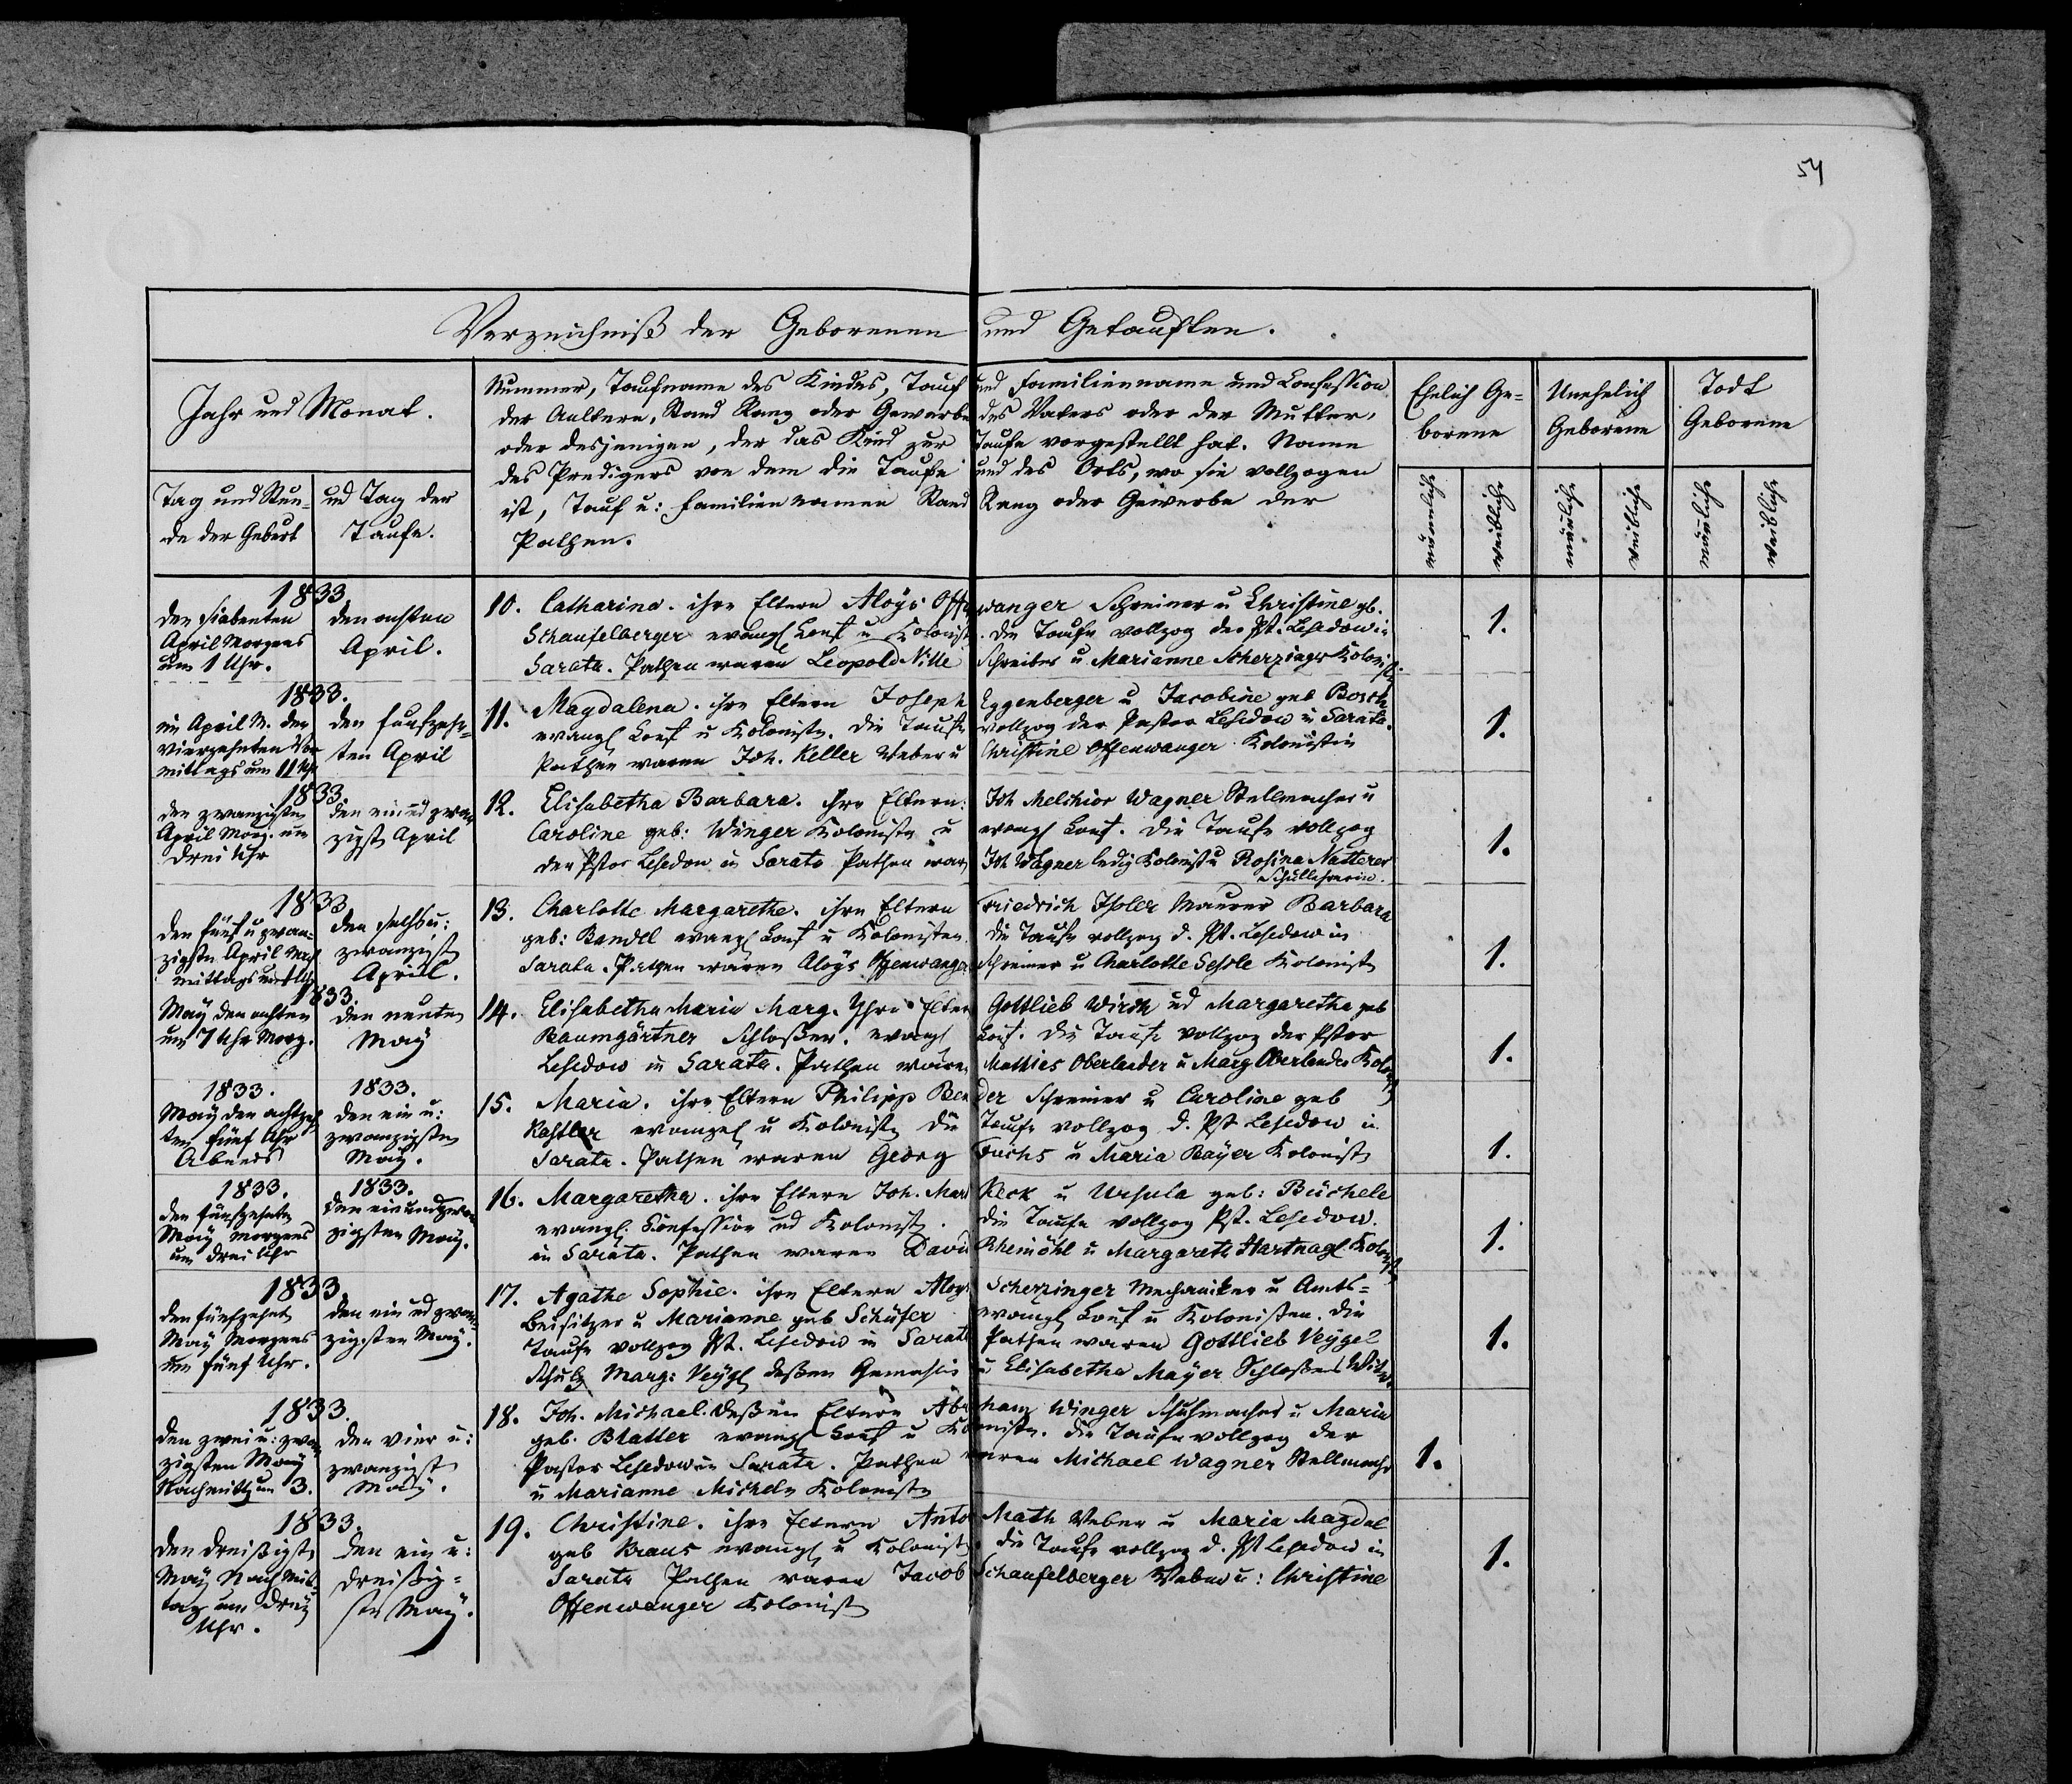 54
Verzeichniß der Geborenen und Getauften.
Jahr und Monat.
Tag und Stun-
de der Geburt
und Tag der
Taufe.
Nummer, Taufname des Kindes, Tauf und Familienname und Confession
der Aeltern, Stand Rang oder Gewerbe des Vaters oder der Mutter,
oder desjenigen, der das Kind zur Taufe vorgestellt hat. Name
des Predigers von dem die Taufe und des Orts, wo sie vollzogen
ist, Tauf u: Familiennamen Stand Rang oder Gewerbe der
Pathen.
Ehelich Ge-
borene
Unehelich
Geborene
Todt
Geborene
männliche
weibliche
männliche
weibliche
männliche
weibliche
1833.
den siebenten
April Morgens
um 1 Uhr.
den achten
April.
10. Catharina. ihre Eltern Aloys Offenwanger Schreiner u Christine gb.
Schaufelberger evangl Conf u Kolonist. die Taufe vollzog der Pst. Lesedow in
Sarata. Pathen waren Leopold Nille Schreiber u Marianne Scherzinger Kolonisten
1.
1833.
im April M. den
vierzehnten Vor
mittags um 11 Uhr
den fünfzehn-
ten April
11. Magdalena. ihre Eltern Joseph Eggenberger u Jacobine geb Bosch
evangl Conf u Koloniste. die Taufe vollzog der Pastor Lesedow in Sarata.
Pathen waren Joh. Keller Weber u Christine Offenwanger Kolonistin
1.
1833.
den zwanzigsten
April Morg. um
drei Uhr
den ein ud zwan
zigst April
12. Elisabetha Barbara. ihre Eltern: Joh Melchior Wagner Stellmacher u
Caroline geb: Winger Koloniste u evangl Conf. die Taufe vollzog
der Pstor Lesedow in Sarata Pathen waren Joh Wagner ledig Kolonist u Rosina Natterer
Schullehrerin.
1.
1833.
den fünf u zwan-
zigsten April Nach
mittags um
den sechs u:
zwanzigst
April.
13. Charlotte Margarethe. ihre Eltern Friedrich Isler Maurer Barbara
geb: Bendel evangl Conf u Kolonisten. die Taufe vollzog d. Pst. Lesedow in
Sarata. Pathen waren Aloys Offenwanger Schreiner u Charlotte Koloniste
1.
1833.
May den achten
um 7 Uhr Morg.
den neunten
May
14. Elisabetha Maria Marg. Ihre Eltern Gottlieb Wirth ud Margaretha geb
Baumgärtner Schloßer. evangl Conf. Die Taufe vollzog der Pstor
Lesedow in Sarata. Pathen waren Mathies Oberlander u Marg Oberlander Kolonist
1.
1833.
May den achtzehn
ten fünf Uhr
Abends
1833.
den ein u:
zwanzigsten
May.
15. Maria. ihre Eltern Philipp Bender Schreiner u Caroline geb
Kastler evangel u Koloniste die Taufe vollzog d. Pst Lesedow in
Sarata. Pathen waren Georg Fuchs u Maria Bayer Koloniste
1.
1833.
den fünfzehnten
May Morgens
um drei Uhr
1833.
den ein und zwan
zigsten May.
16. Margaretha. ihre Eltern Joh. Mart Keck u Ursula geb: Büchele
evangl. Confession ud Kolonist. die Taufe vollzog Pst. Lesedow.
in Sarata. Pathen waren David Rheinöhl u Margareth Hartnagl Kolonist
1.
1833.
den fünfzehnt
May Morgens
um fünf Uhr.
den ein ud zwan-
zigsten May.
17. Agathe Sophie. ihre Eltern Aloys Scherzinger Mechaniker u Amts-
beisitzer u Marianne geb Schäfer evangl Conf u Kolonisten. die
Taufe vollzog Pst. Lesedow in Sarata Pathen waren Gottlieb Veygel
Schulz Marg: Veygl deßen Gemahlin u Elisabetha Mayer Schloßers Witwe
1.
1833.
den zwei u: zwan
zigsten May
Nachmitt um 3.
den vier u:
zwanzigst
May.
18. Joh. Michael. deßen Eltern Abraham Winger Schuhmacher u Maria
geb. Blatter evangl Conf u Koloniste. die Taufe vollzog der
Pastor Lesedow in Sarata. Pathen waren Michael Wagner Stellmacher
u Marianne Micheln Koloniste
1.
1833.
den dreißigst
May Nach Mit
tag um drey
Uhr.
den ein u:
dreißig-
ste May.
19. Christine. ihre Eltern Anton Math Weber u Maria Magdal
geb Kraus evangl u Koloniste. die Taufe vollzog d. Pst Lesedow in
Sarata Pathen waren Jacob Schaufelberger Weber u: Christine
Offenwanger Kolonist
1.